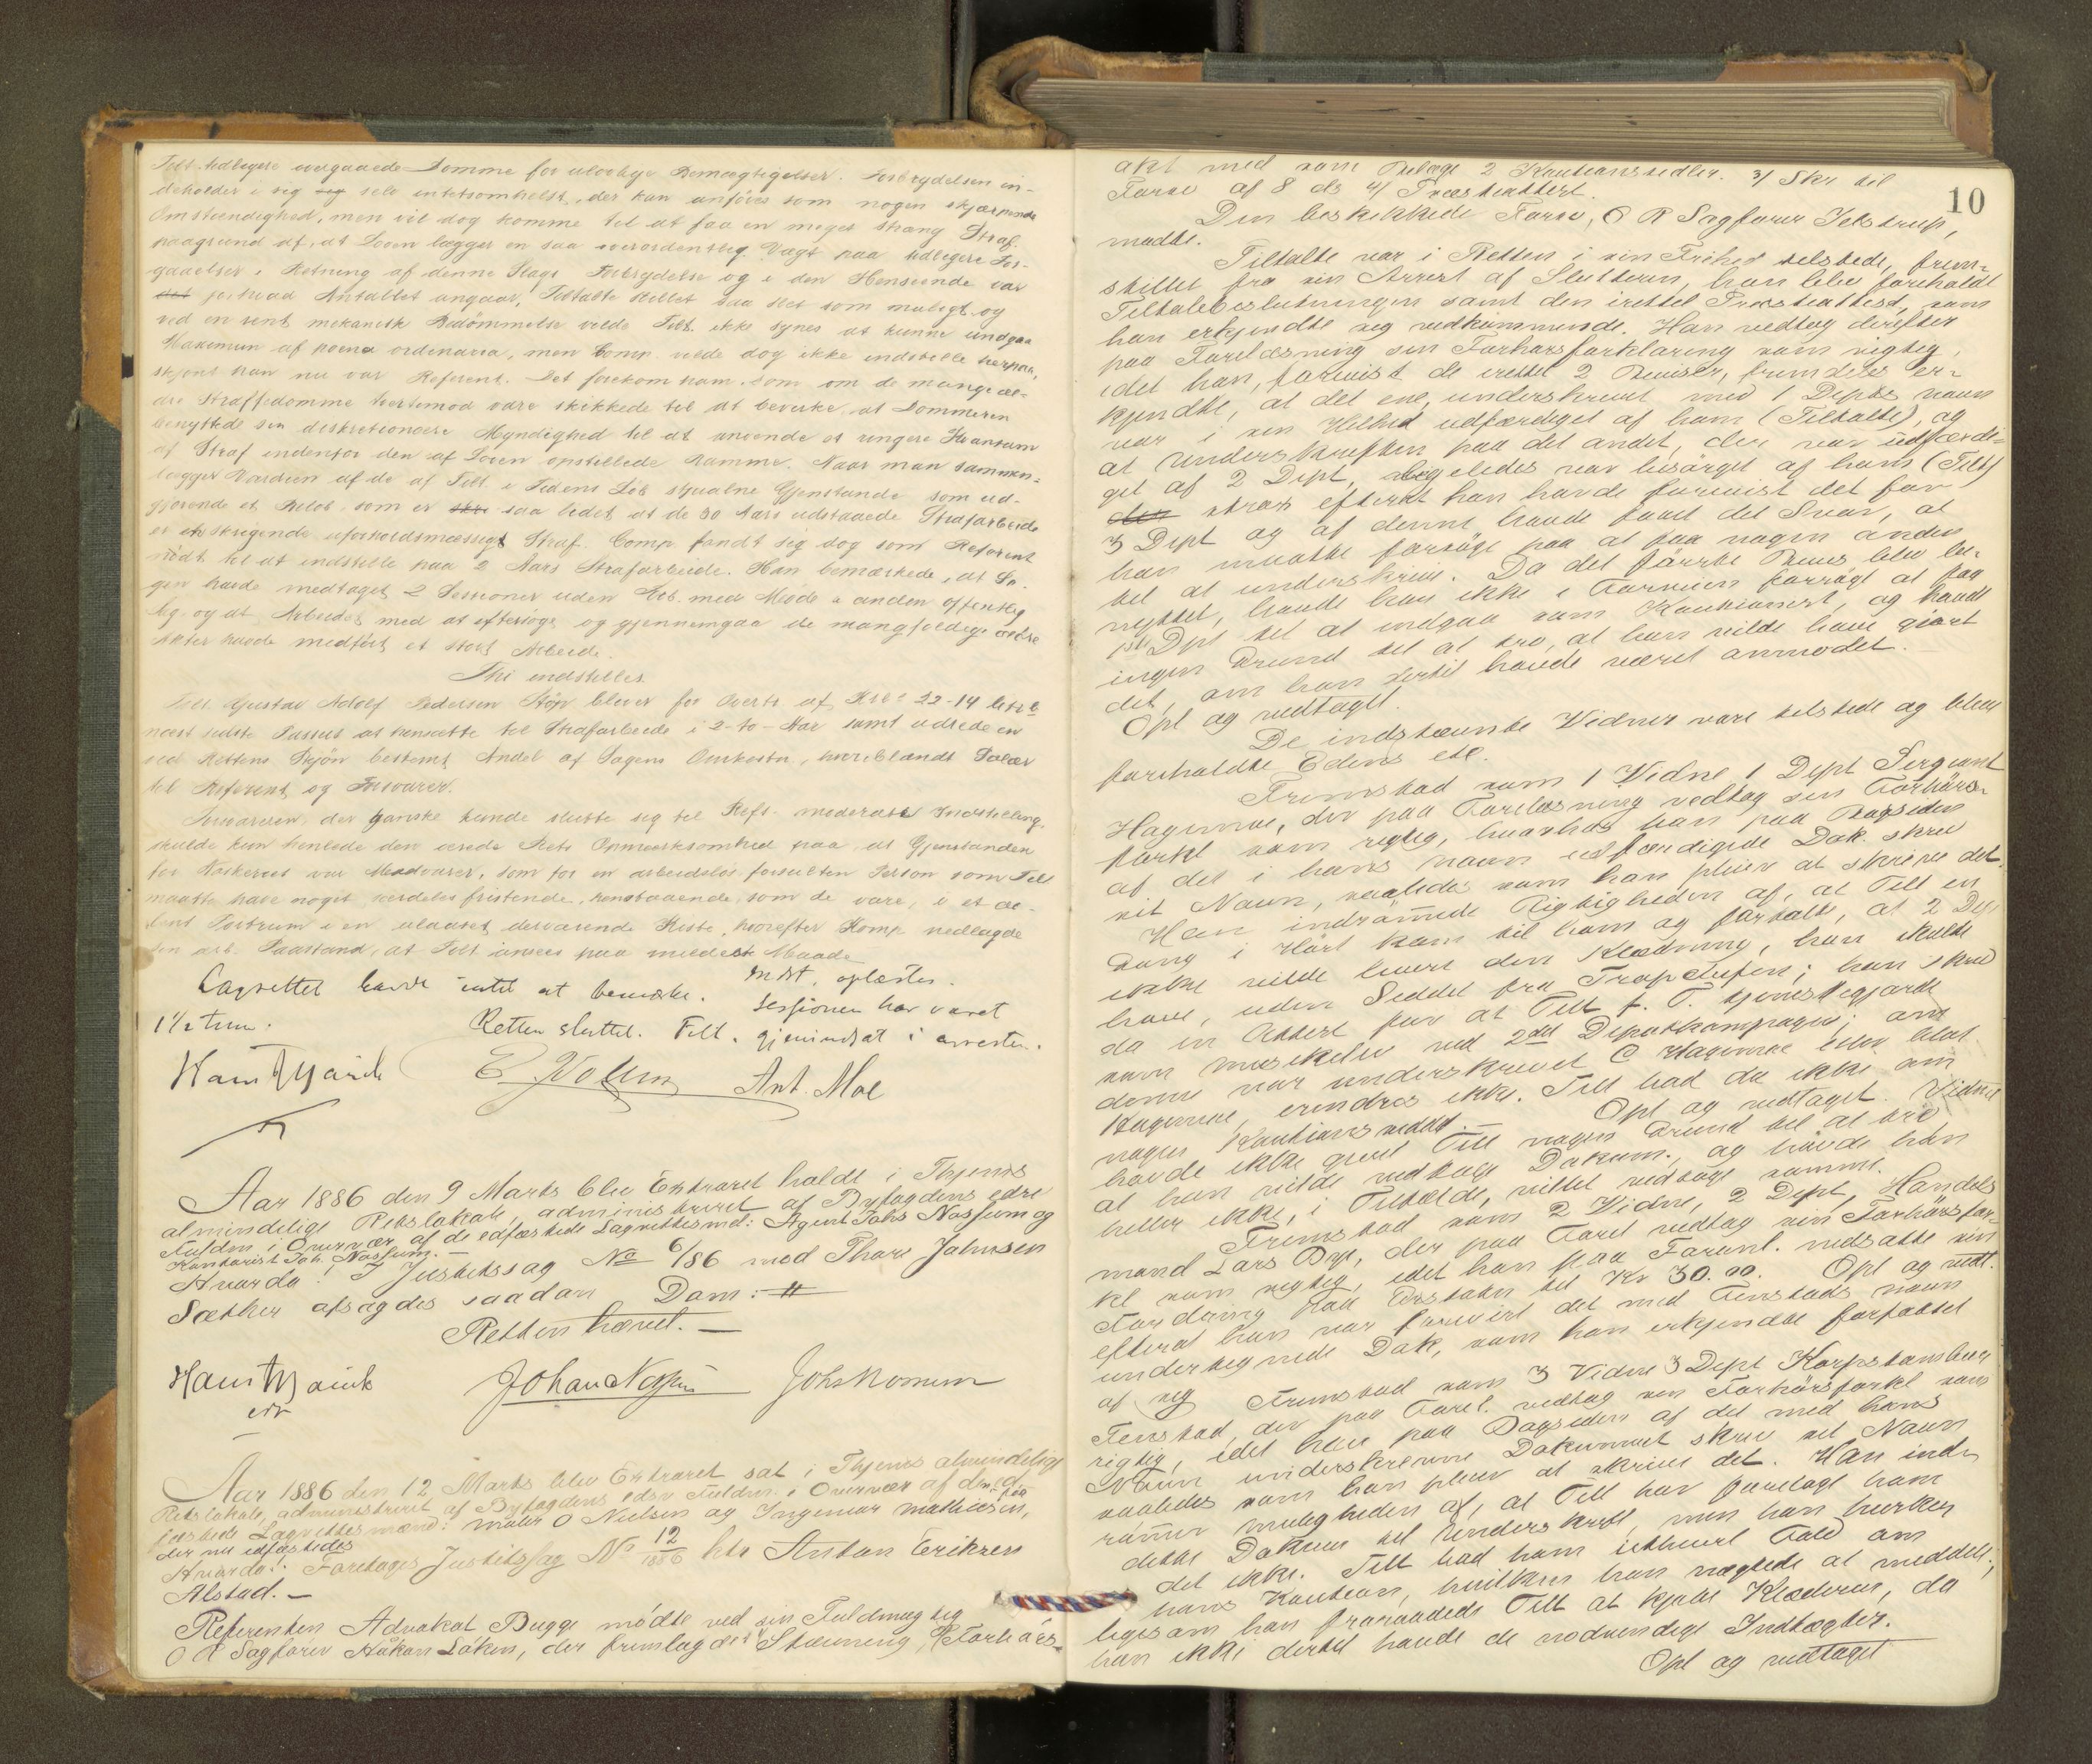 Tilt. tidligere overgaaede Domme for ulovlige Bemægtigelser. Forbrydelsen in-
deholder i sig seg selv intetsomhelst, der kan anføres som nogen skjærpende
Omstændighed, men vil dog komme til at faa en meget strang Straf
paagrund af, at Loven lægger en saa overordentlig Vægt paa tidligere For-
gaaelser i Retning af denne Slags Forbrydelse og i den Henseende var
det forhvad Antallet angaar, Tiltalte stillet saa slet som muligt og
ved en rent mekanisk Bedømmelse vilde Tilt. ikke synes at kunne undgaa
Maximum af poena ordinaria, men Comp. vilde dog ikke indstille herpaa,
skjønt han nu var Referent. Det forekom ham, som om de mange æl-
dre Straffedomme tvertimod vare skikkede til at bevirke, at Dommeren
benyttede sin diskretionære Myndighed til at anvende et ringere Kvantum
af Straf indenfor den af Loven opstillede Ramme. Naar man sammen-
lægger Værdien af de af Tilt. i Tidens Løb stjaalne Gjenstande som ud-
gjørende et Beløb, som er saa lidet at de 30 Aars udstaaede Strafarbeide
er et skrigende uforholdsmæssigt Straf. Comp. fandt sig dog som Referent
nødt til at indstille paa 2 Aars Strafarbeide. Han bemærkede, at Sa-
gen havde medtaget 2 Sessioner uden Tilb. med Møde i anden offentlig
Sag og at Arbeidet med at eftersøge og gjennemgaa de mangfoldige ældre
Akter havde medført et stort Arbeide.
Thi indstilles
Tilt. Gustav Adolf Pedersen Støp bliver for Overtr. af Krl's 22-14 litr b
næst sidste Passus at hensætte til Strafarbeide i 2-to-Aar samt udrede en
ved Rettens Skjøn bestemt Andel af Sagens Omkostn., hvoriblandt Salær
til Referent og Forsvarer.
Forsvareren, der ganske kunde slutte sig til Refts. moderate Indstilling,
skulde kun henlede den ærede Rets Opmærksomhed paa, at Gjenstanden
for Naskeriet var Madvarer, som for en arbeidsløs forsulten Person som Tilt
maatte have noget særdeles fristende, henstaaende, som de vare, i et aa-
bent Portrum i en ulaaset derværende Kiste, hvorefter Komp nedlagde
den alb. Paastand, at Tilt ansees paa mildeste Maade
Lagrettet havde intet at bemærke. Indst. oplæstes.
1½ time. Sessionen har varet
Retten sluttet. Tilt. gjenindsat i arresten.
E. Vollum Ant. Moe
Aar 1886 den 9 Marts blev Extraret holdt i Thjems
almindelige Retslokale, administreret af Byfogdens edsv
Fuldm. i Overvær af de edfæstede Lagrettesmd: Agent Johs Nossum og
Kontorist Joh. Nossum.—
Hvorda: I Justitssag No 6/86 mod Thora Johnsen
Sæther afsagdes saadan Dom: #
Retten hævet.—
Johan Nossum Johs Nossum
Aar 1886 den 12 Marts blev Extraret sat i Thjems almindelige
Retslokale, administreret af Byfogdens edsv Fuldm. i Overvær af de ed-
fæstede Lagrettesmænd: maler O Nielsen og Ingemar Mathiesen,
der nu edfæstedes
Hvorda: Foretoges Justitssag No 12/1886 ctr Anton Eriksen
Alstad.—
Referenten Advokat Bugge mødte ved sin Fuldmægtig
O R Sagfører Håkon Løken, der fremlagde 1/ Stævning, 2/ Forhørs-
10
akt med som Bilage 2 Kautionssedler. 3/ Skr til
Forsv af 8 ds 4/ Præsteattest.
Den beskikkede Forsv, O R Sagfører Jelstrup,
mødte.
Tiltalte var i Retten i sin Frihed tilstede, frem-
stillet fra sin Arrest af Slutteren, han blev foreholdt
Tiltalebeslutningen samt den irettel Præsteattest, som
han erkjendte sig vedkommende. Han vedtog derefter
paa Forelæsning sin Forhørsforklaring som rigtig,
idet han, forevist de irettel 2 Beviser, fremdeles er-
kjendte, at det ene, underskrevet med 1 Depts navn
var i sin Helhed udfærdiget af ham (Tiltalte), og
at Underskriften paa det andet, der var udfærdi-
get af 2 Dept, ligeledes var besørget af ham (Tilt)
den strax efterat han havde forevist det for
3 Dept og af denne havde faaet det Svar, at
han maatte forsøge paa at faa nogen anden
til at underskrive. Da det første Bevis blev be-
nyttet, havde han ikke i Forveien forsøgt at faa
1ste Dpt til at indgaa som Kautionist, og havde
ingen Grund til at tro, at han vilde have gjort
det, om han dertil havde været anmodet.—
Opl og vedtaget.
De indstævnte Vidner vare tilstede og bleve
foreholdte Edens etc.
Fremstod som 1 Vidne 1 Dept Sergeant
Hagerme, der paa Forelæsning vedtog sin Forhørs-
forkl som rigtig, hvorhos han paa Bagsiden
af det i hans navn udfærdigede Dok. skrev
sit Navn, saaledes som han pleier at skrive det.
Han indrømmede Rigtigheden af, at Tilt en
Gang i Høst kom til ham og fortalte, at 2 Dept
ikke vilde levere den Klædning, han skulde
have, uden Seddel fra Tropchefen; han skrev
da en Attest for at Tilt f. T. tjenestegjorde
som musikelev ved 2det Depotkompagni; om
denne var underskrevet C Hagerme eller blot
Hagerme, erindres ikke. Tilt bad da ikke om
nogen Kautionsseddel.— Opl og vedtaget. Vidnet
havde ikke givet Tilt nogen Grund til at tro
at han vilde vedtage Dokum., og havde han
heller ikke, i Tilfælde, villet vedtage samme.
Fremstod som 2 Vidne, 2 Dept, Handels
mand Lars Bye, der paa Forel vedtog sin Forhørsfor-
kl som rigtig, idet han paa Foranl. nedsatte sin
Fordring paa Erstatn til Kr 30.00. Opl og vedt.
efterat han var forevist det med Fenstads navn
undertegnede Dok, som han erkjendte forfattet
af sig Fremstod som 3 Vidne 3 Dept Korpstambour
Fenstad, der paa Forel. vedtog sin Forhørsforkl som
rigtig, idet han paa Bagsiden af det med hans
Navn underskrevne Dokument skrev sit Navn
saaledes som han pleier at skrive det. Han ind-
rømmer muligheden af, at Tilt har forelagt ham
dette Dokum til Underskrift, men han husker
det ikke. Tilt bad ham iethvert Fald om
hans Kaution, hvilken han nægtede at meddele,
ligesom han fraraadede Tilt at kjøbe Klæderne, da
han ikke dertil havde de nødvendige Indtægter.
Opl og vedtaget